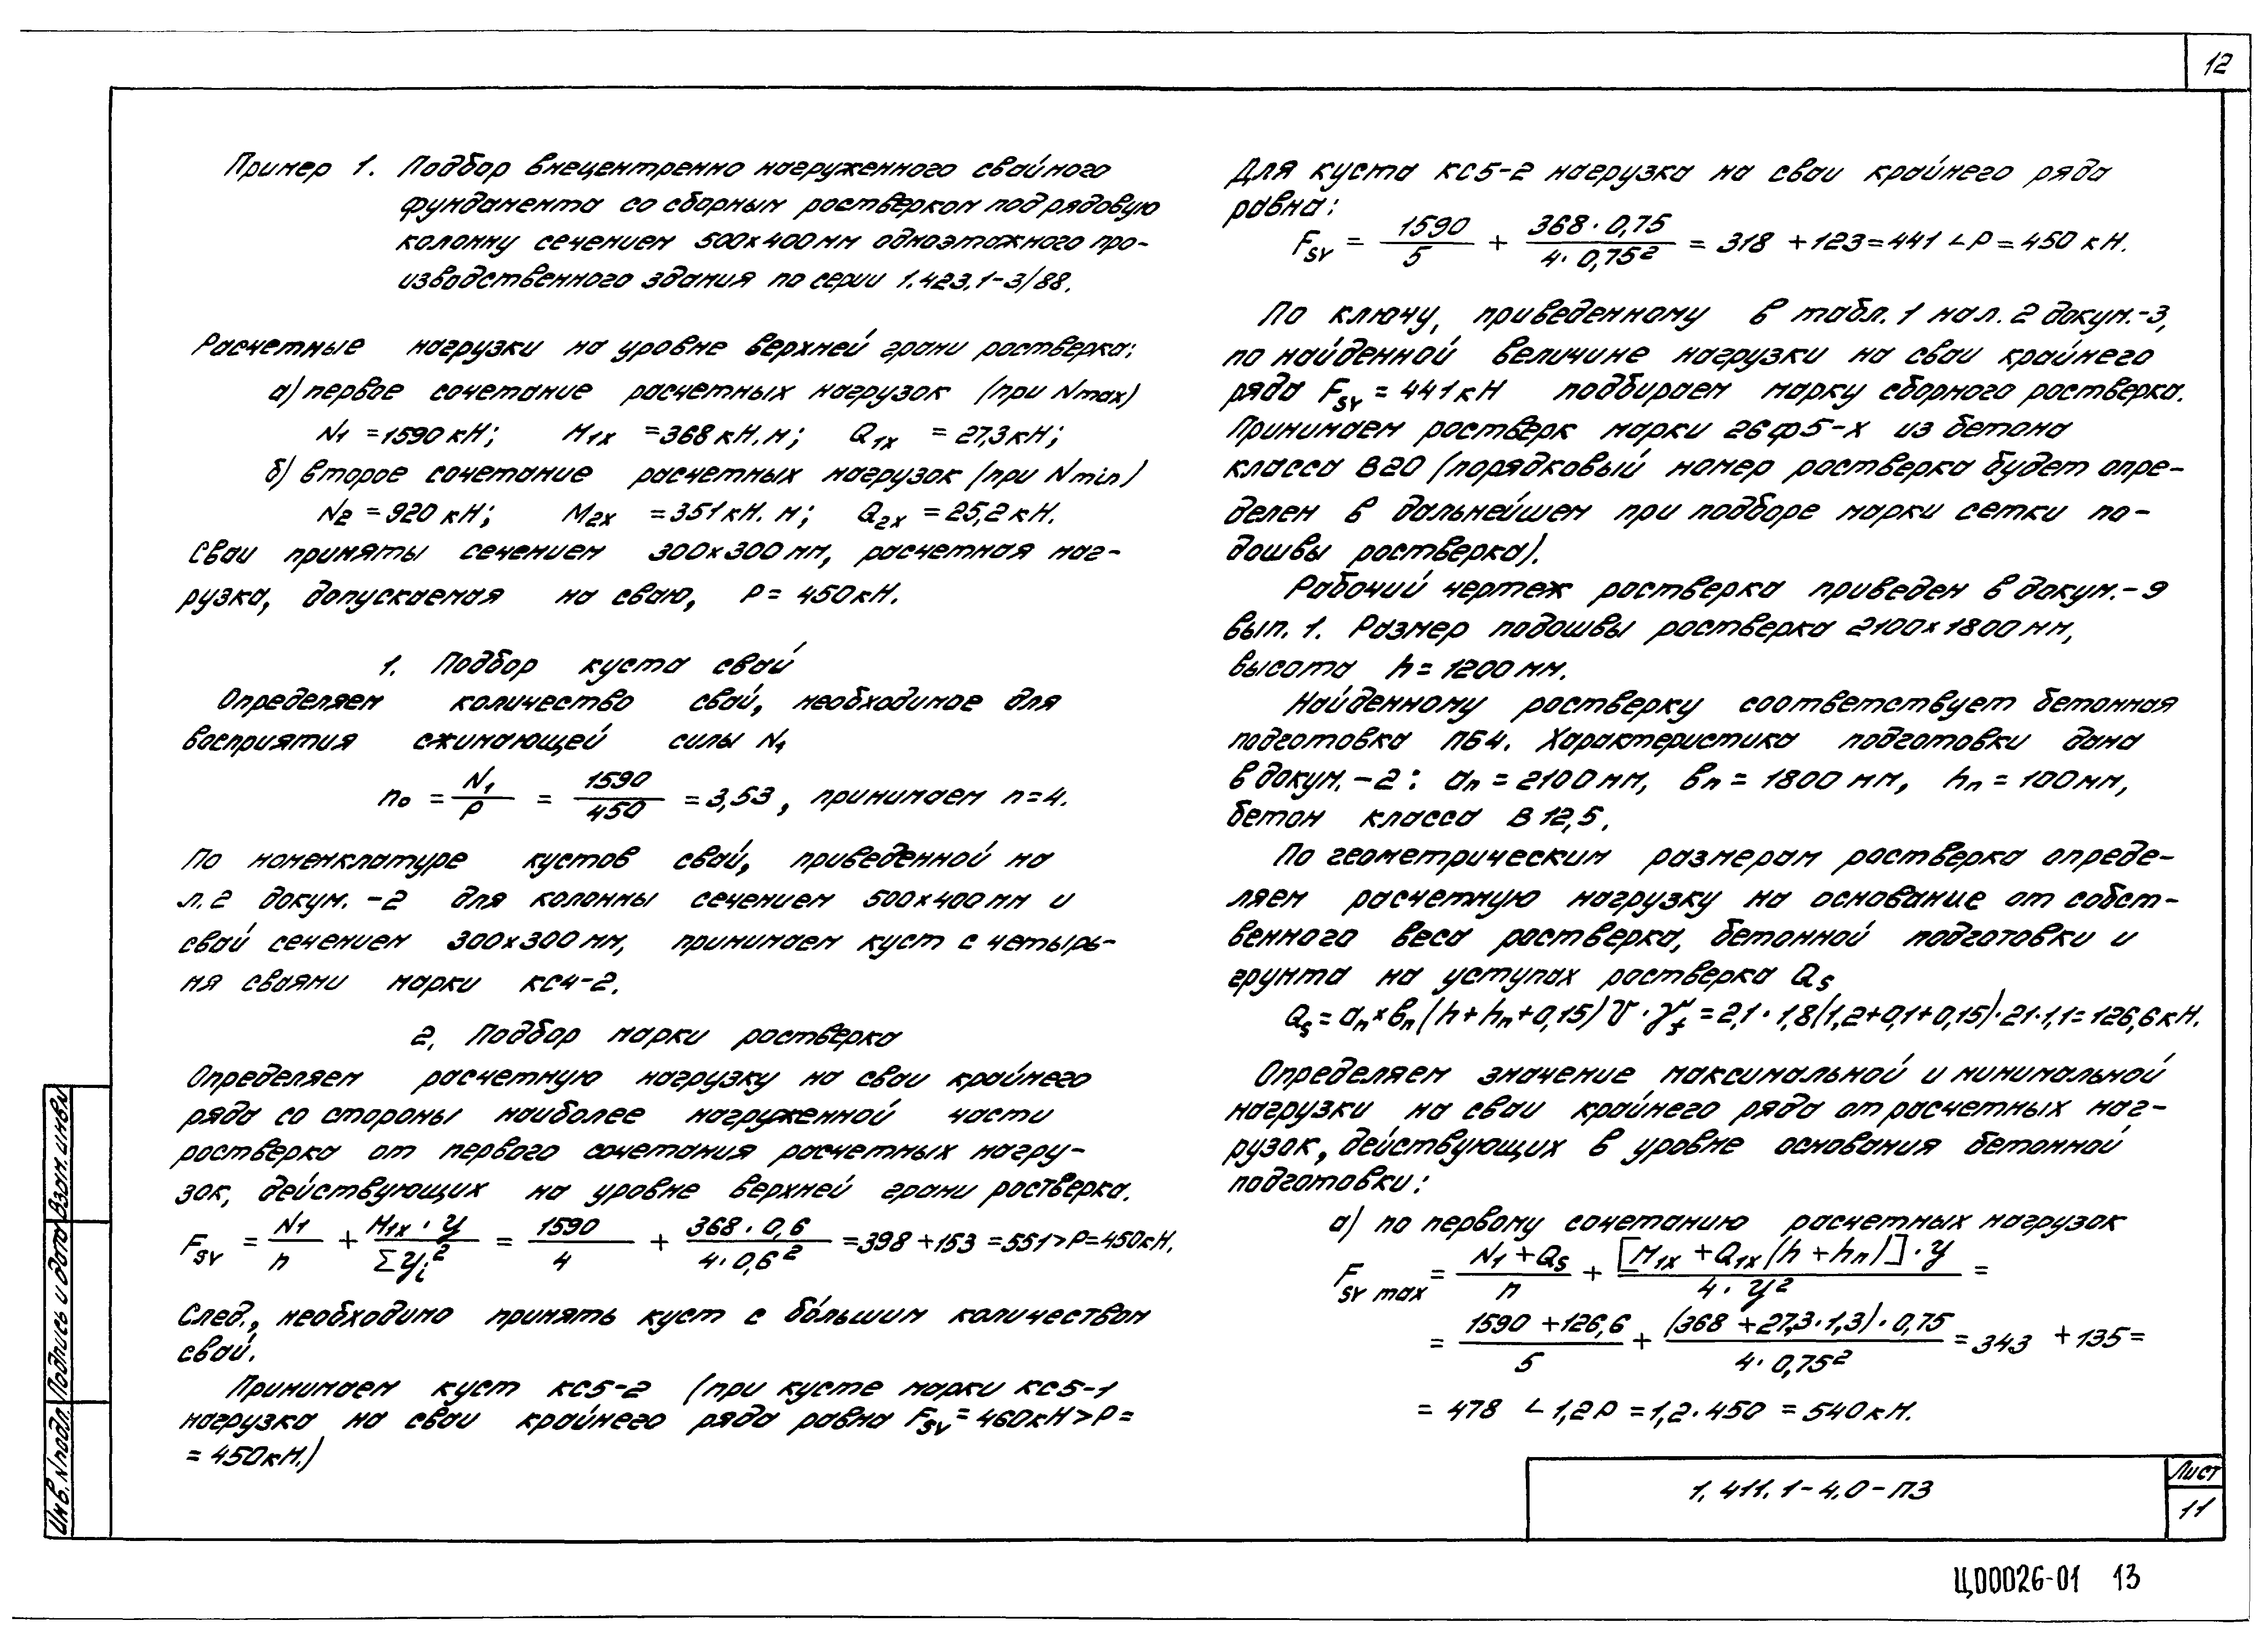 12
Пример 1. Подбор внецентренно нагруженного свайного
фундамента со сборным ростверком под рядовую
колонну сечением 500х400 мм одноэтажного про-
изводственного здания по серии 1.423.1-3/88.
Расчетные нагрузки на уровне верхней грани ростверка:
а) первое сочетание расчетных нагрузок (при Nmax)
N₁ = 1590 кН; M₁ₓ = 368 кН.м; Q₁ₓ = 27,3 кН;
б) второе сочетание расчетных нагрузок (при Nmin)
N₂ = 920 кН; M₂ₓ = 351 кН.м; Q₂ₓ = 25,2 кН.
Сваи приняты сечением 300х300 мм, расчетная наг-
рузка, допускаемая на сваю, P = 450 кН.
1. Подбор куста свай
Определяем количество свай, необходимое для
восприятия сжимающей силы N₁
n₀ = N₁/P = 1590/450 = 3,53, принимаем n=4.
По номенклатуре кустов свай, приведенной на
л.2 докум. -2 для колонны сечением 500х400 мм и
свай сечением 300х300 мм, принимаем куст с четырь-
мя сваями марки КС4-2.
2. Подбор марки ростверка
Определяем расчетную нагрузку на сваи крайнего
ряда со стороны наиболее нагруженной части
ростверка от первого сочетания расчетных нагру-
зок, действующих на уровне верхней грани ростверка.
Fsv = N₁/n + M₁ₓ · y/Σyᵢ² = 1590/4 + 368 · 0,6/4 · 0,6² = 398 + 153 = 551 > P = 450 кН.
След., необходимо принять куст с бо́льшим количеством
свай.
Принимаем куст КС5-2 (при кусте марки КС5-1
нагрузка на сваи крайнего ряда равна Fsv = 460 кН > P =
= 450 кН.)
Для куста КС5-2 нагрузка на сваи крайнего ряда
равна:
Fsv = 1590/5 + 368 · 0,75/4 · 0,75² = 318 + 123 = 441 < P = 450 кН.
По ключу, приведенному в табл. 1 на л. 2 докум.-3,
по найденной величине нагрузки на сваи крайнего
ряда Fsv = 441 кН подбираем марку сборного ростверка.
Принимаем ростверк марки 2вф5-х из бетона
класса В20 (порядковый номер ростверка будет опре-
делен в дальнейшем при подборе марки сетки по-
дошвы ростверка).
Рабочий чертеж ростверка приведен в докум.-9
вып. 1. Размер подошвы ростверка 2100х1800 мм,
высота h = 1200 мм.
Найденному ростверку соответствует бетонная
подготовка ПБ4. Характеристика подготовки дана
в докум. -2: aп = 2100 мм, вп = 1800 мм, hп = 100 мм,
бетон класса В 12,5.
По геометрическим размерам ростверка опреде-
ляем расчетную нагрузку на основание от собст-
венного веса ростверка, бетонной подготовки и
грунта на уступах ростверка Qs
Qs = aп × вп (h + hп + 0,15) ϑ · γf = 2,1 · 1,8 (1,2+0,1+0,15) · 21 · 1,1 = 126,6 кН.
Определяем значение максимальной и минимальной
нагрузки на сваи крайнего ряда от расчетных наг-
рузок, действующих в уровне основания бетонной
подготовки:
а) по первому сочетанию расчетных нагрузок
Fsv max = N₁ + Qs/n + [M₁ₓ + Q₁ₓ (h + hп)] · y/4 · y² =
= 1590 + 126,6/5 + (368 + 27,3 · 1,3) · 0,75/4 · 0,75² = 343 + 135 =
= 478 < 1,2 P = 1,2 · 450 = 540 кН.
Инв. N подл. Подпись и дата Взам. инв. N
1.411.1-4.0-ПЗ
Лист
11
Ц00026-01 13